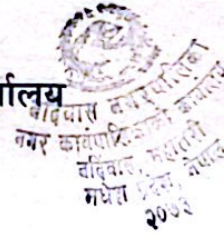 र्यालय
बर्दिबास नगरपालिका
नगर कार्यपालिकाको कार्यालय
बर्दिबास, महोत्तरी
मधेश प्रदेश, नेपाल
२०७३